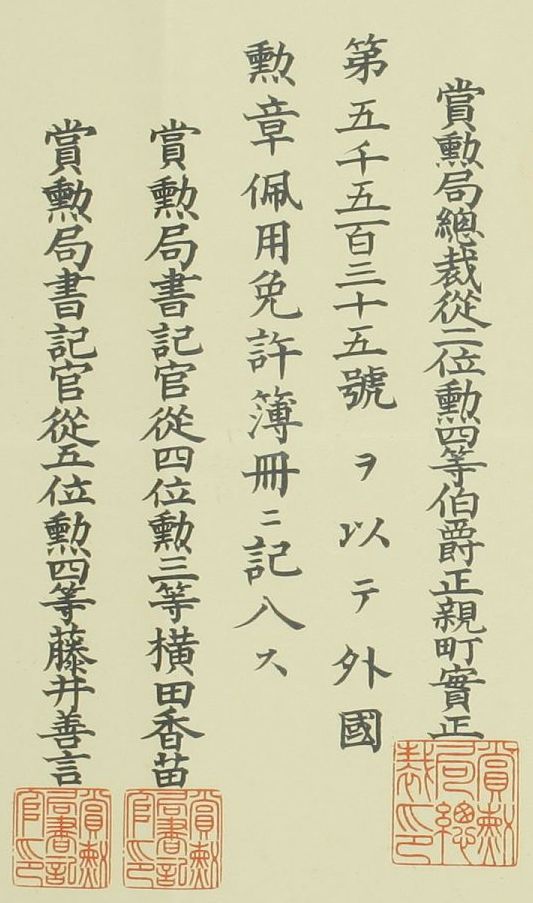 賞勲局總裁從二位勲四等伯爵正親町實正
第五千五百三十五號ヲ以テ外國
勲章佩用免許簿冊ニ記入ス
賞勲局書記官從四位勲三等橫田香苗
賞勲局書記官從五位勲四等藤井善言
賞勲局總裁印
賞勲局書記官印
賞勲局書記官印